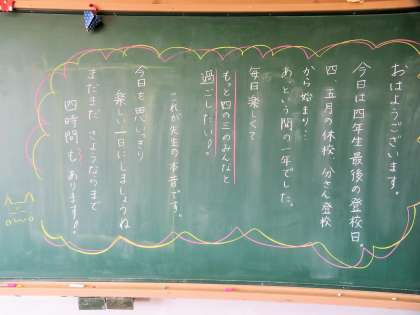 おはようございます。
今日は四年生最後の登校日。
四、五月の休校、分さん登校
から始まり…
あっという間の一年でした。
毎日楽しくて
もっと四の三のみんなと
過ごしたい!!
これが先生の本音です。
今日も思いっきり
楽しい一日にしましょうね
まだまだ、さようならまで
四時間もあります!